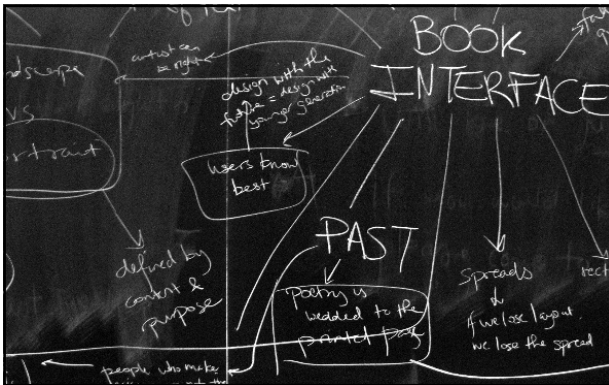 BOOK
INTERFACE
artist can
be right
design with the
future = design with
younger generation
landscape
VS
portrait
users know
best
PAST
defined by
content &
purpose
poetry is
wedded to the
printed page
spreads
if we lose layout
we lose the spread
rect
people who make